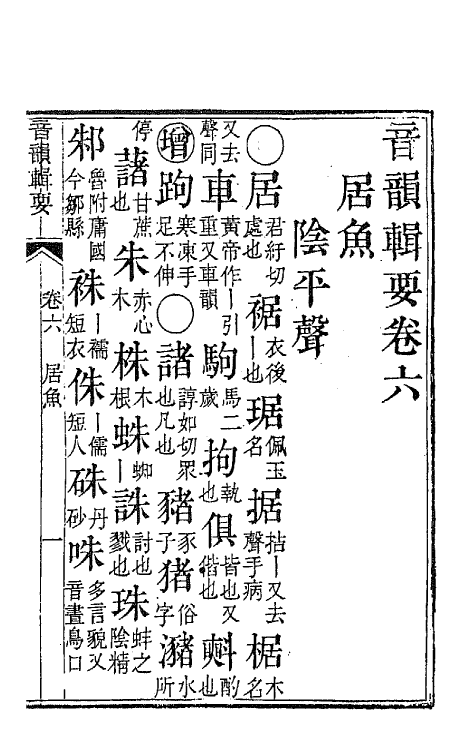 音韻輯要卷六
居魚
陰平聲
○居君紆切處也裾衣後丨也琚佩玉名据拮丨又去聲手病椐木名
又去聲同車黃帝作丨引重又車韻駒馬二歲拘執也俱皆也又偕也㪺酌也
增跔寒凍手足不伸○諸諄如切眾也凡也豬豕子豬俗字瀦水所
停藷甘蔗也朱赤心木株木根蛛丨蝥誅討也戮也珠蚌之陰精
邾魯附庸國今鄒縣袾丨襦短衣侏丨儒短人硃丹砂咮多言貌又音晝鳥口
音韻輯要 卷六 居魚 一